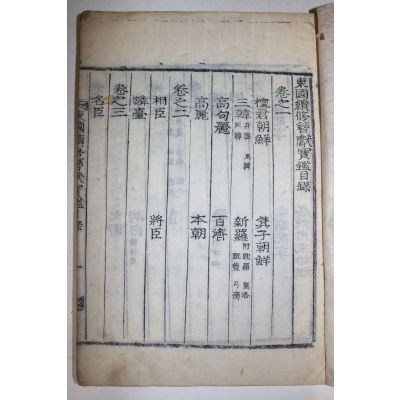 東國續修文獻寶鑑目錄
卷之一
檀君朝鮮 箕子朝鮮
三韓 弁韓 馬韓 辰韓 新羅 附 駕洛
高句麗 百濟
高麗 本朝
卷之二
相臣 將臣
麟臺
卷之三
名臣